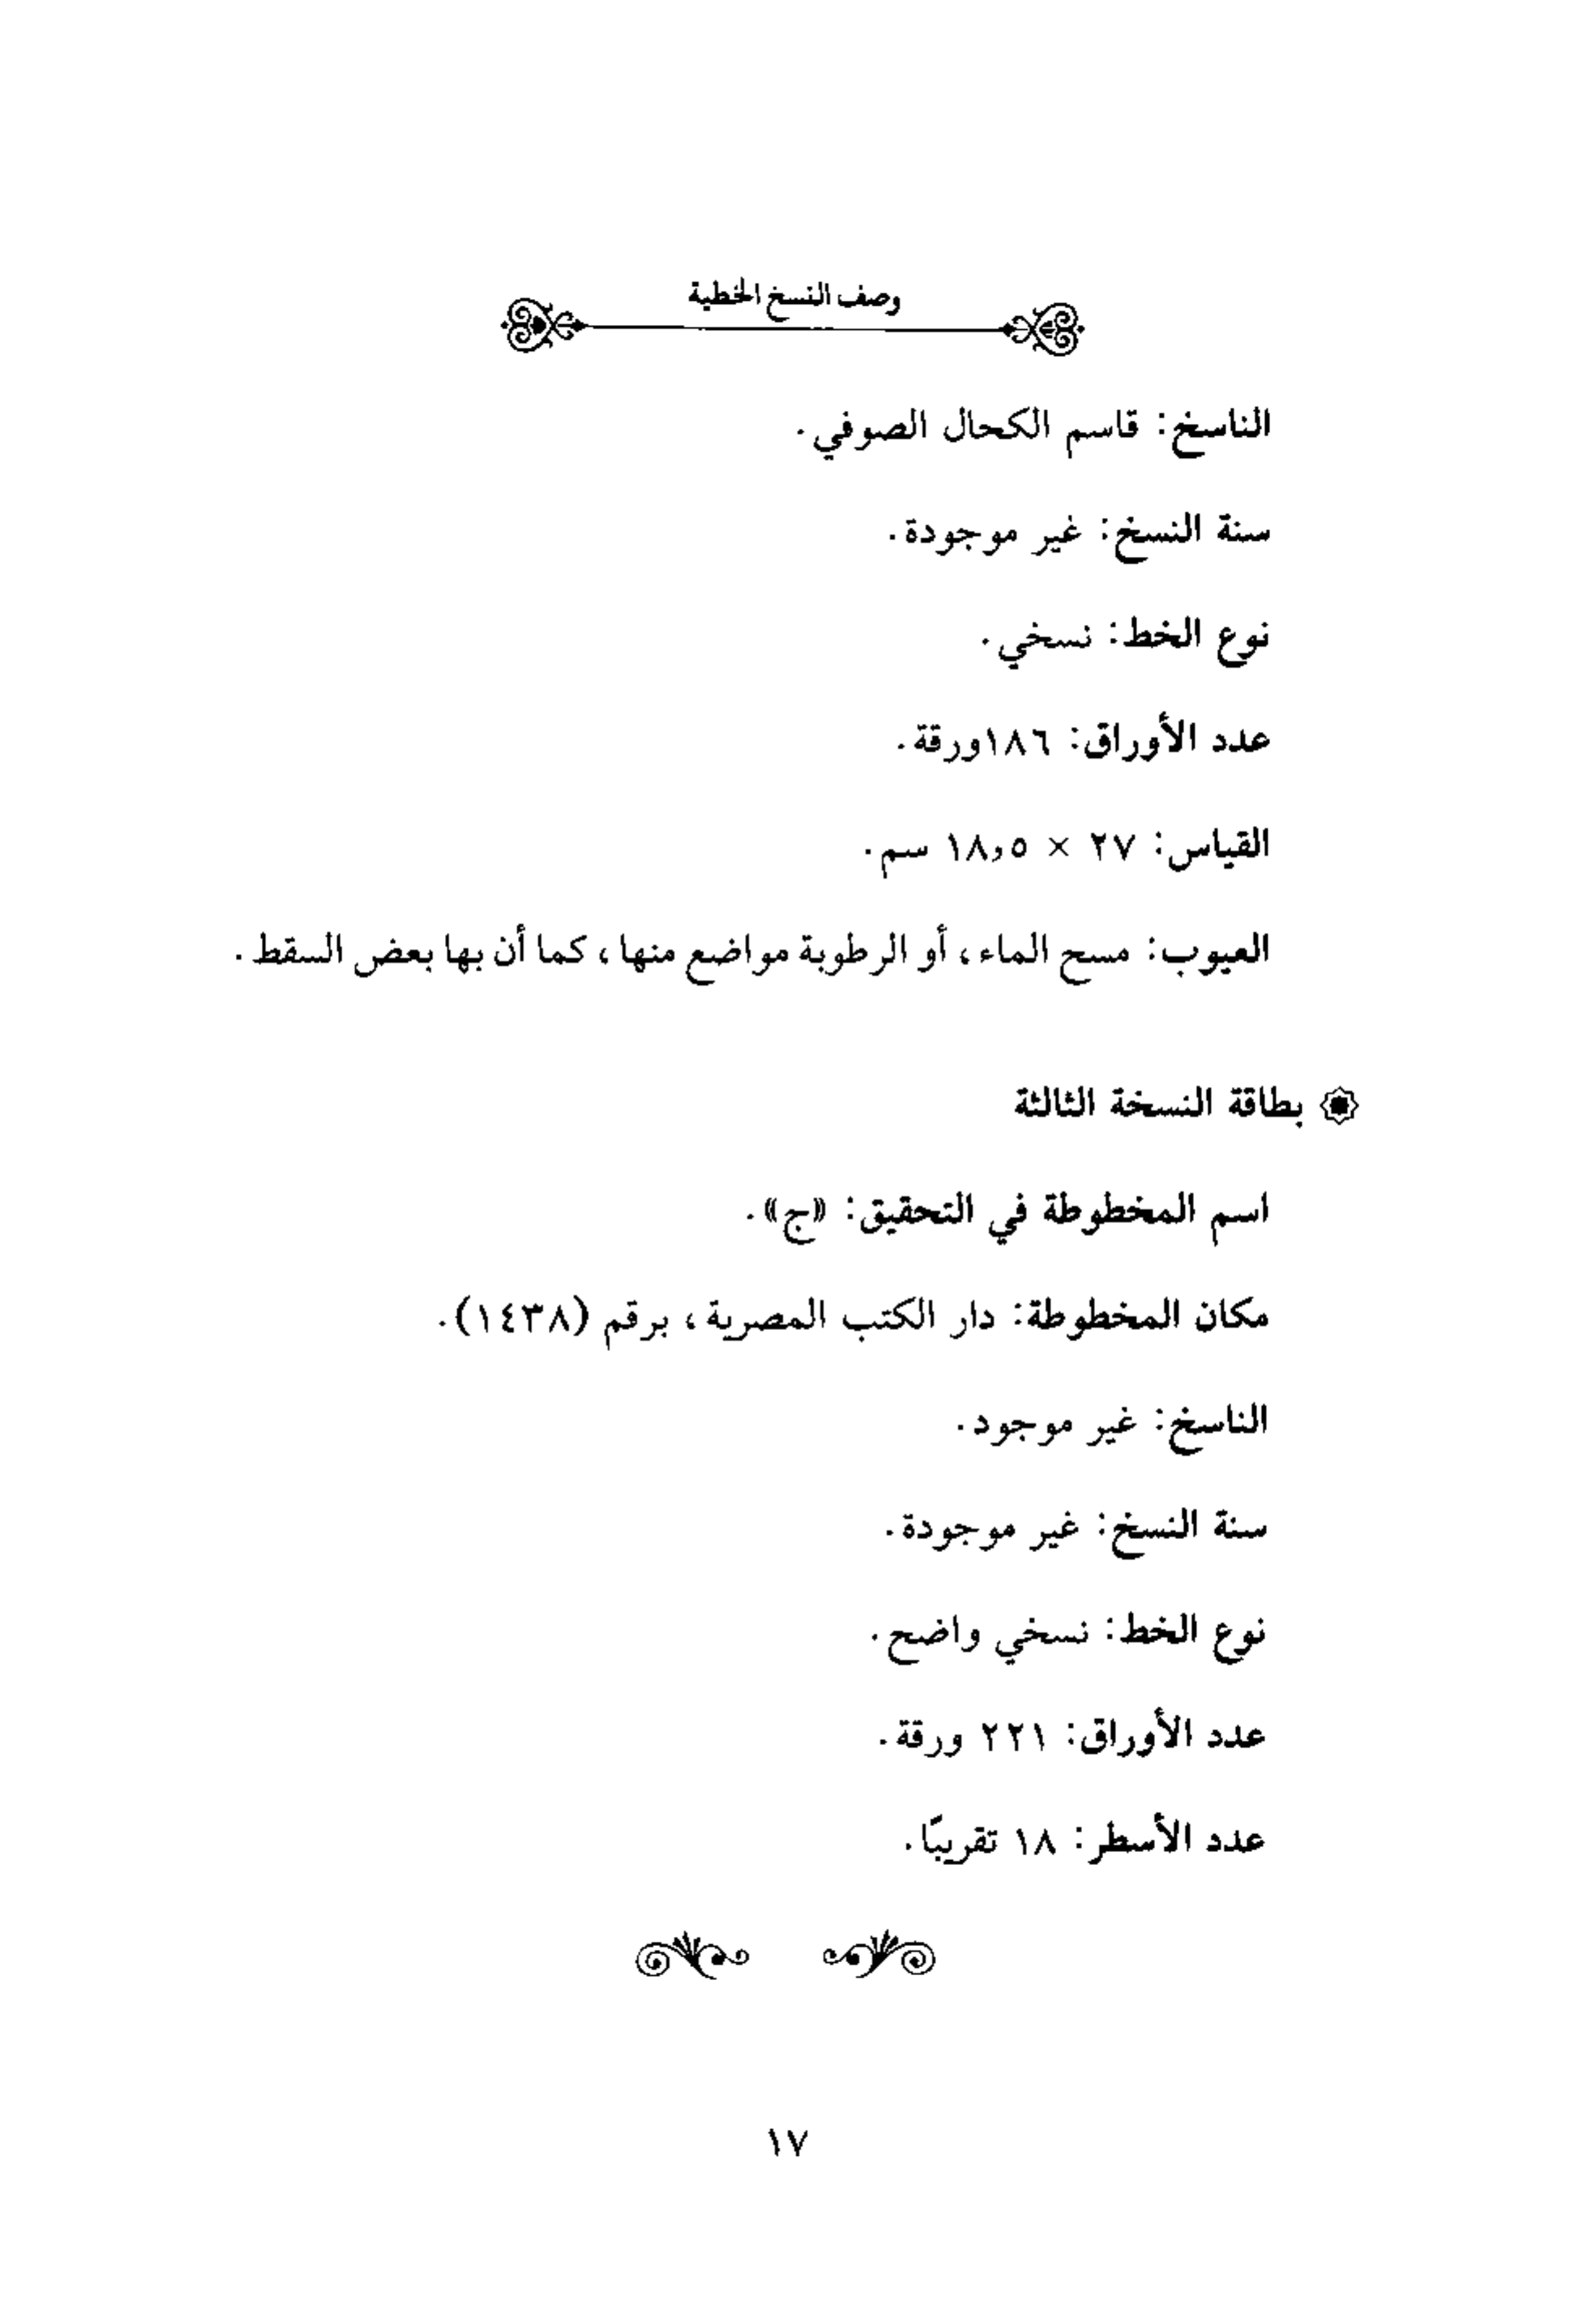 وصف النسخ الخطية
الناسخ: قاسم الكحال الصوفي.
سنة النسخ: غير موجودة.
نوع الخط: نسخي.
عدد الأوراق: ١٨٦ورقة.
القياس: ٢٧ × ١٨,٥ سم.
العيوب: مسح الماء، أو الرطوبة مواضع منها، كما أن بها بعض السقط.
بطاقة النسخة الثالثة
اسم المخطوطة في التحقيق: «ج».
مكان المخطوطة: دار الكتب المصرية، برقم (١٤٣٨).
الناسخ: غير موجود.
سنة النسخ: غير موجودة.
نوع الخط: نسخي واضح.
عدد الأوراق: ٢٢١ ورقة.
عدد الأسطر: ١٨ تقريبًا.
١٧